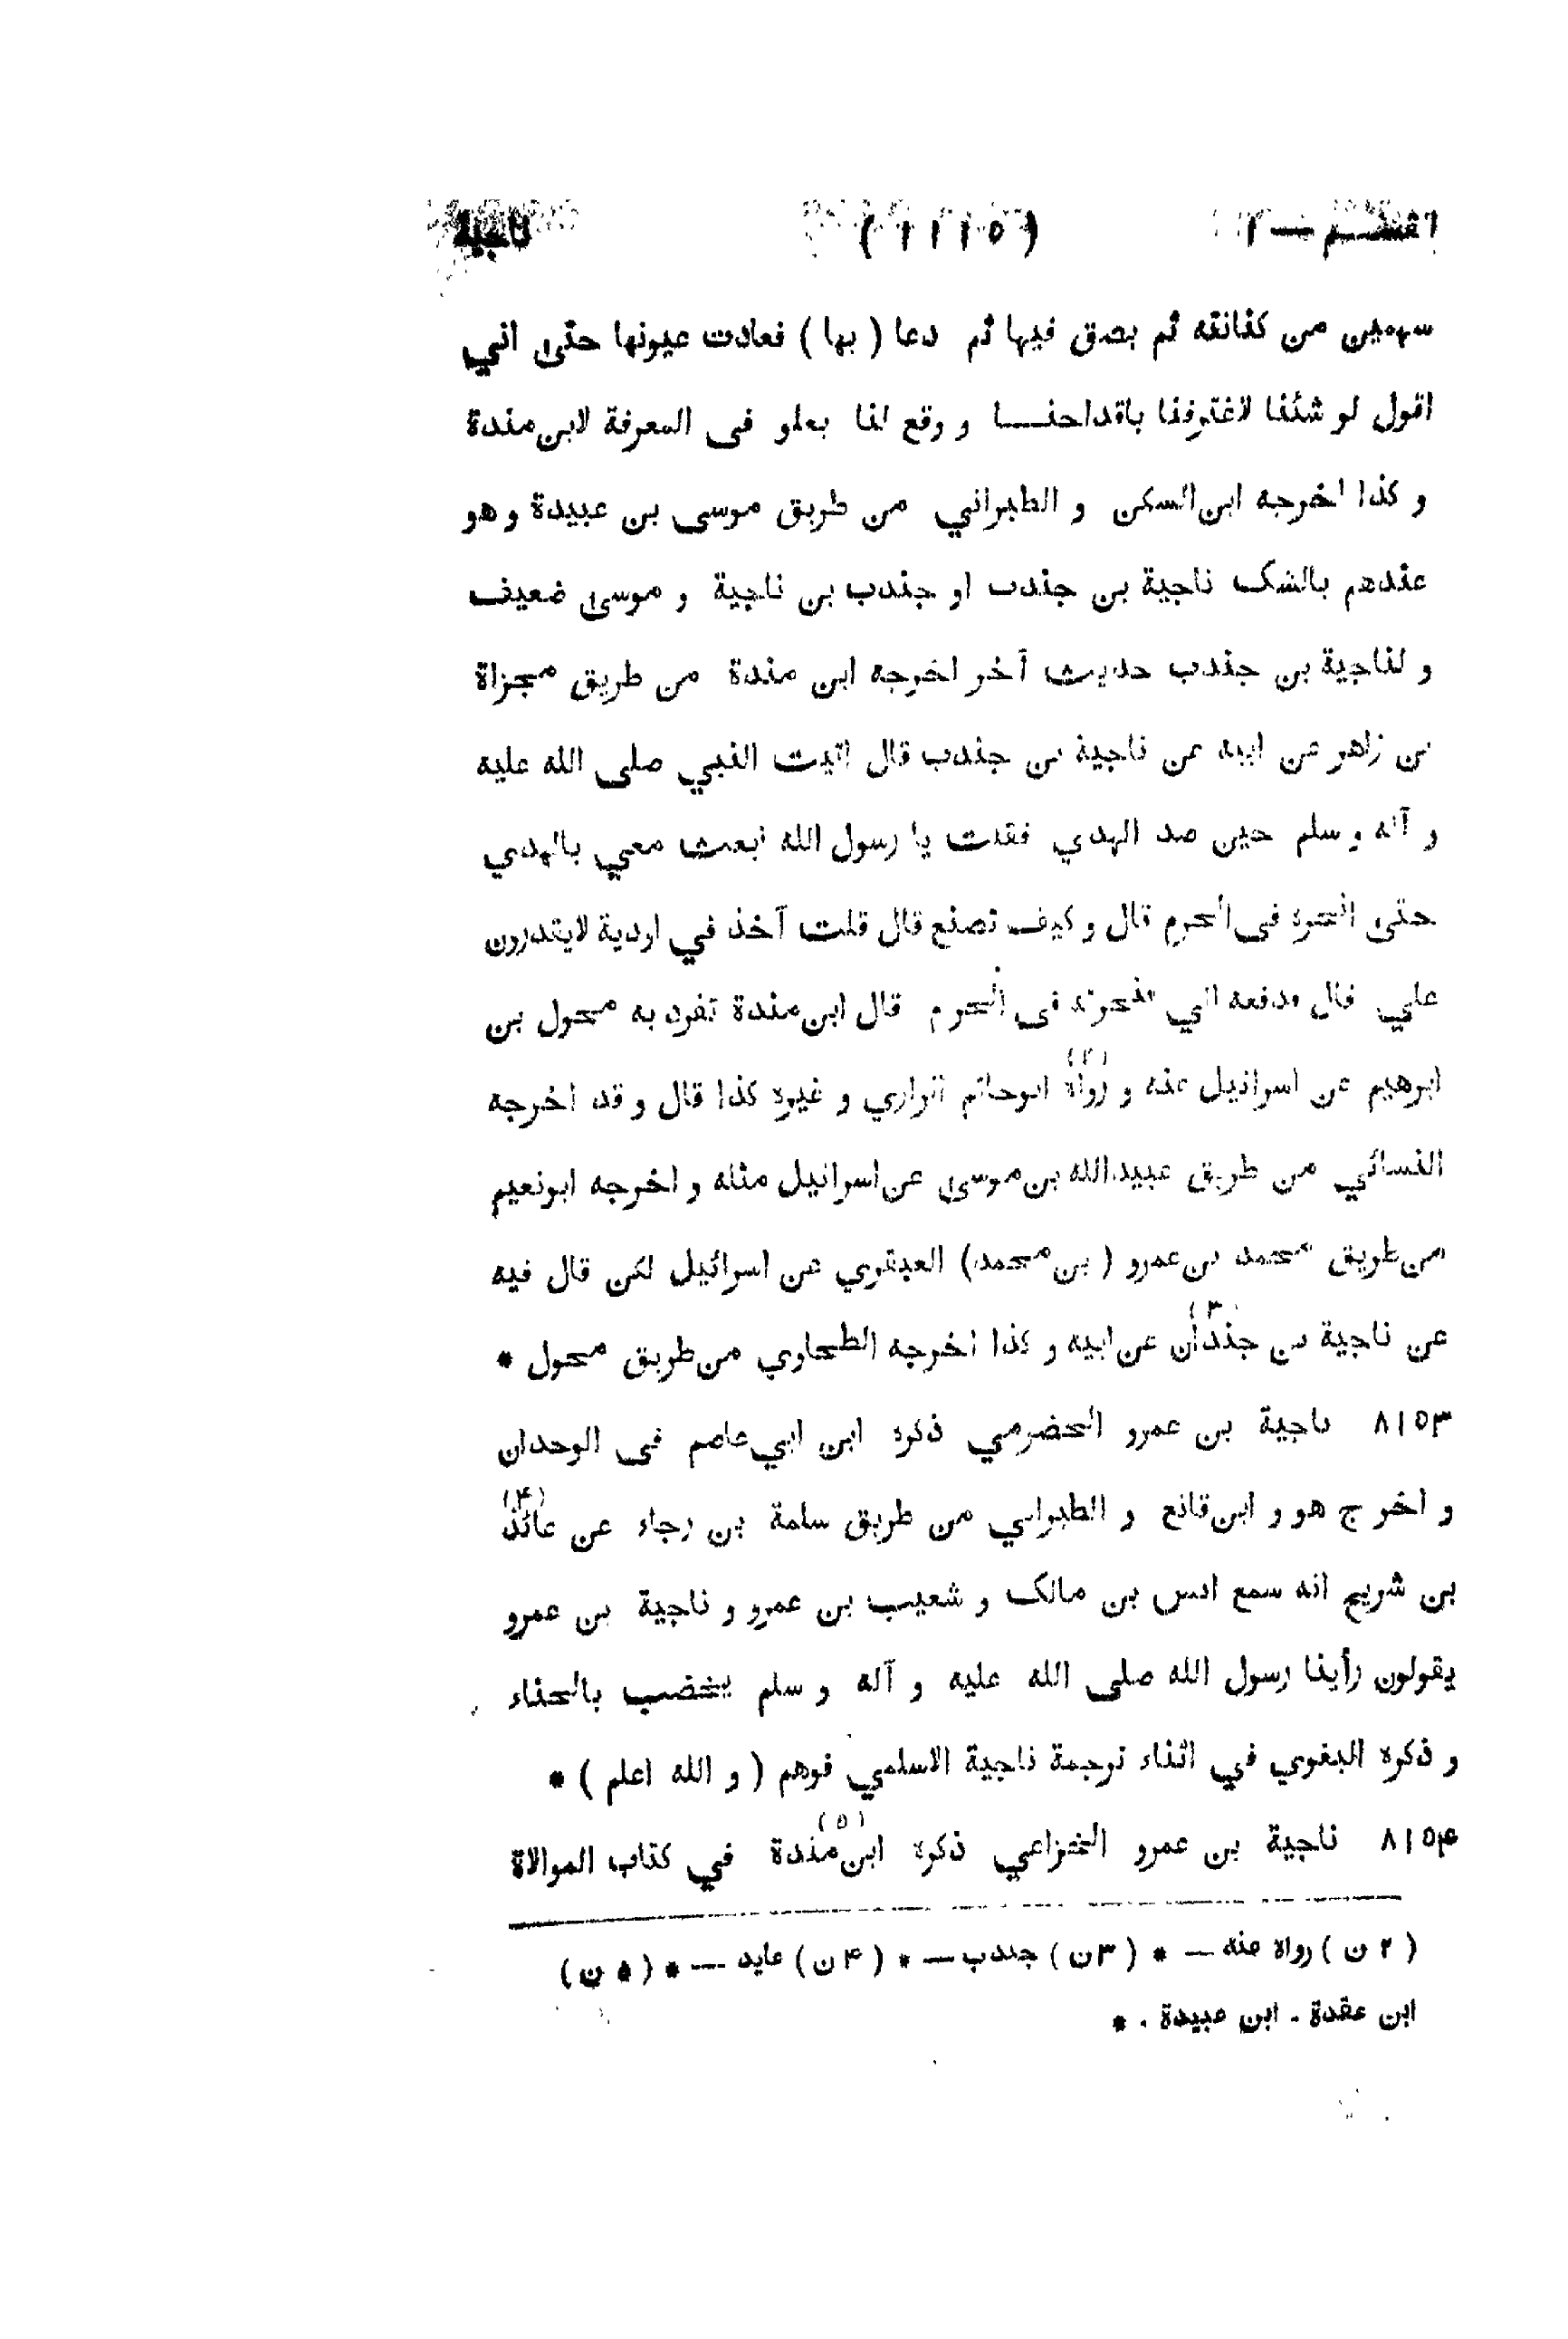 القسم — ١ ( ١١١٥ ) ناجية
سهمين من كنانته ثم بصق فيها ثم دعا ( بها ) فعادت عيونها حتى اني
اقول لو شئنا لاغترفنا باقداحنا و وقع لنا بعلو في المعرفة لابن مندة
و كذا اخرجه ابن السكن و الطبراني من طريق موسى بن عبيدة و هو
عندهم بالشك ناجية بن جندب او جندب بن ناجية و موسى ضعيف
و لناجية بن جندب حديث آخر اخرجه ابن مندة من طريق مجزاة
بن زاهر عن ابيه عن ناجية بن جندب قال اتيت النبي صلى الله عليه
و آله و سلم حين صد الهدي فقلت يا رسول الله ابعث معي بالهدي
حتى انحره في الحرم قال و كيف تصنع قال قلت آخذ في اودية لايقدرون
علي قال فدفعه الي فنحرته في الحرم قال ابن مندة تفرد به محول بن
ابرهيم عن اسرائيل عنه و رواه (٢) ابو حاتم الرازي و غيره كذا قال و قد اخرجه
النسائي من طريق عبيد الله بن موسى عن اسرائيل مثله و اخرجه ابونعيم
من طريق محمد بن عمرو ( بن محمد ) العبقري عن اسرائيل لكن قال فيه
عن ناجية بن جندان (٣) عن ابيه و كذا اخرجه الطحاوي من طريق محول *
٨١٥٣ ناجية بن عمرو الحضرمي ذكره ابن ابي عاصم في الوحدان
و اخرج هو و ابن قانع و الطبراني من طريق سلمة بن رجاء عن عائذ (۴)
بن شريح انه سمع انس بن مالك و شعيب بن عمرو و ناجية بن عمرو
يقولون رأينا رسول الله صلى الله عليه و آله و سلم يخضب بالحناء
و ذكره البغوي في اثناء ترجمة ناجية الاسلمي فوهم ( و الله اعلم ) *
٨١٥۴ ناجية بن عمرو الخزاعي ذكره ابن مندة (٥) في كتاب الموالاة
( ٢ ن ) رواه عنه — * ( ٣ ن ) جندب — * ( ۴ ن ) عايد — * ( ٥ ن )
ابن عقدة . ابن عبيدة . *